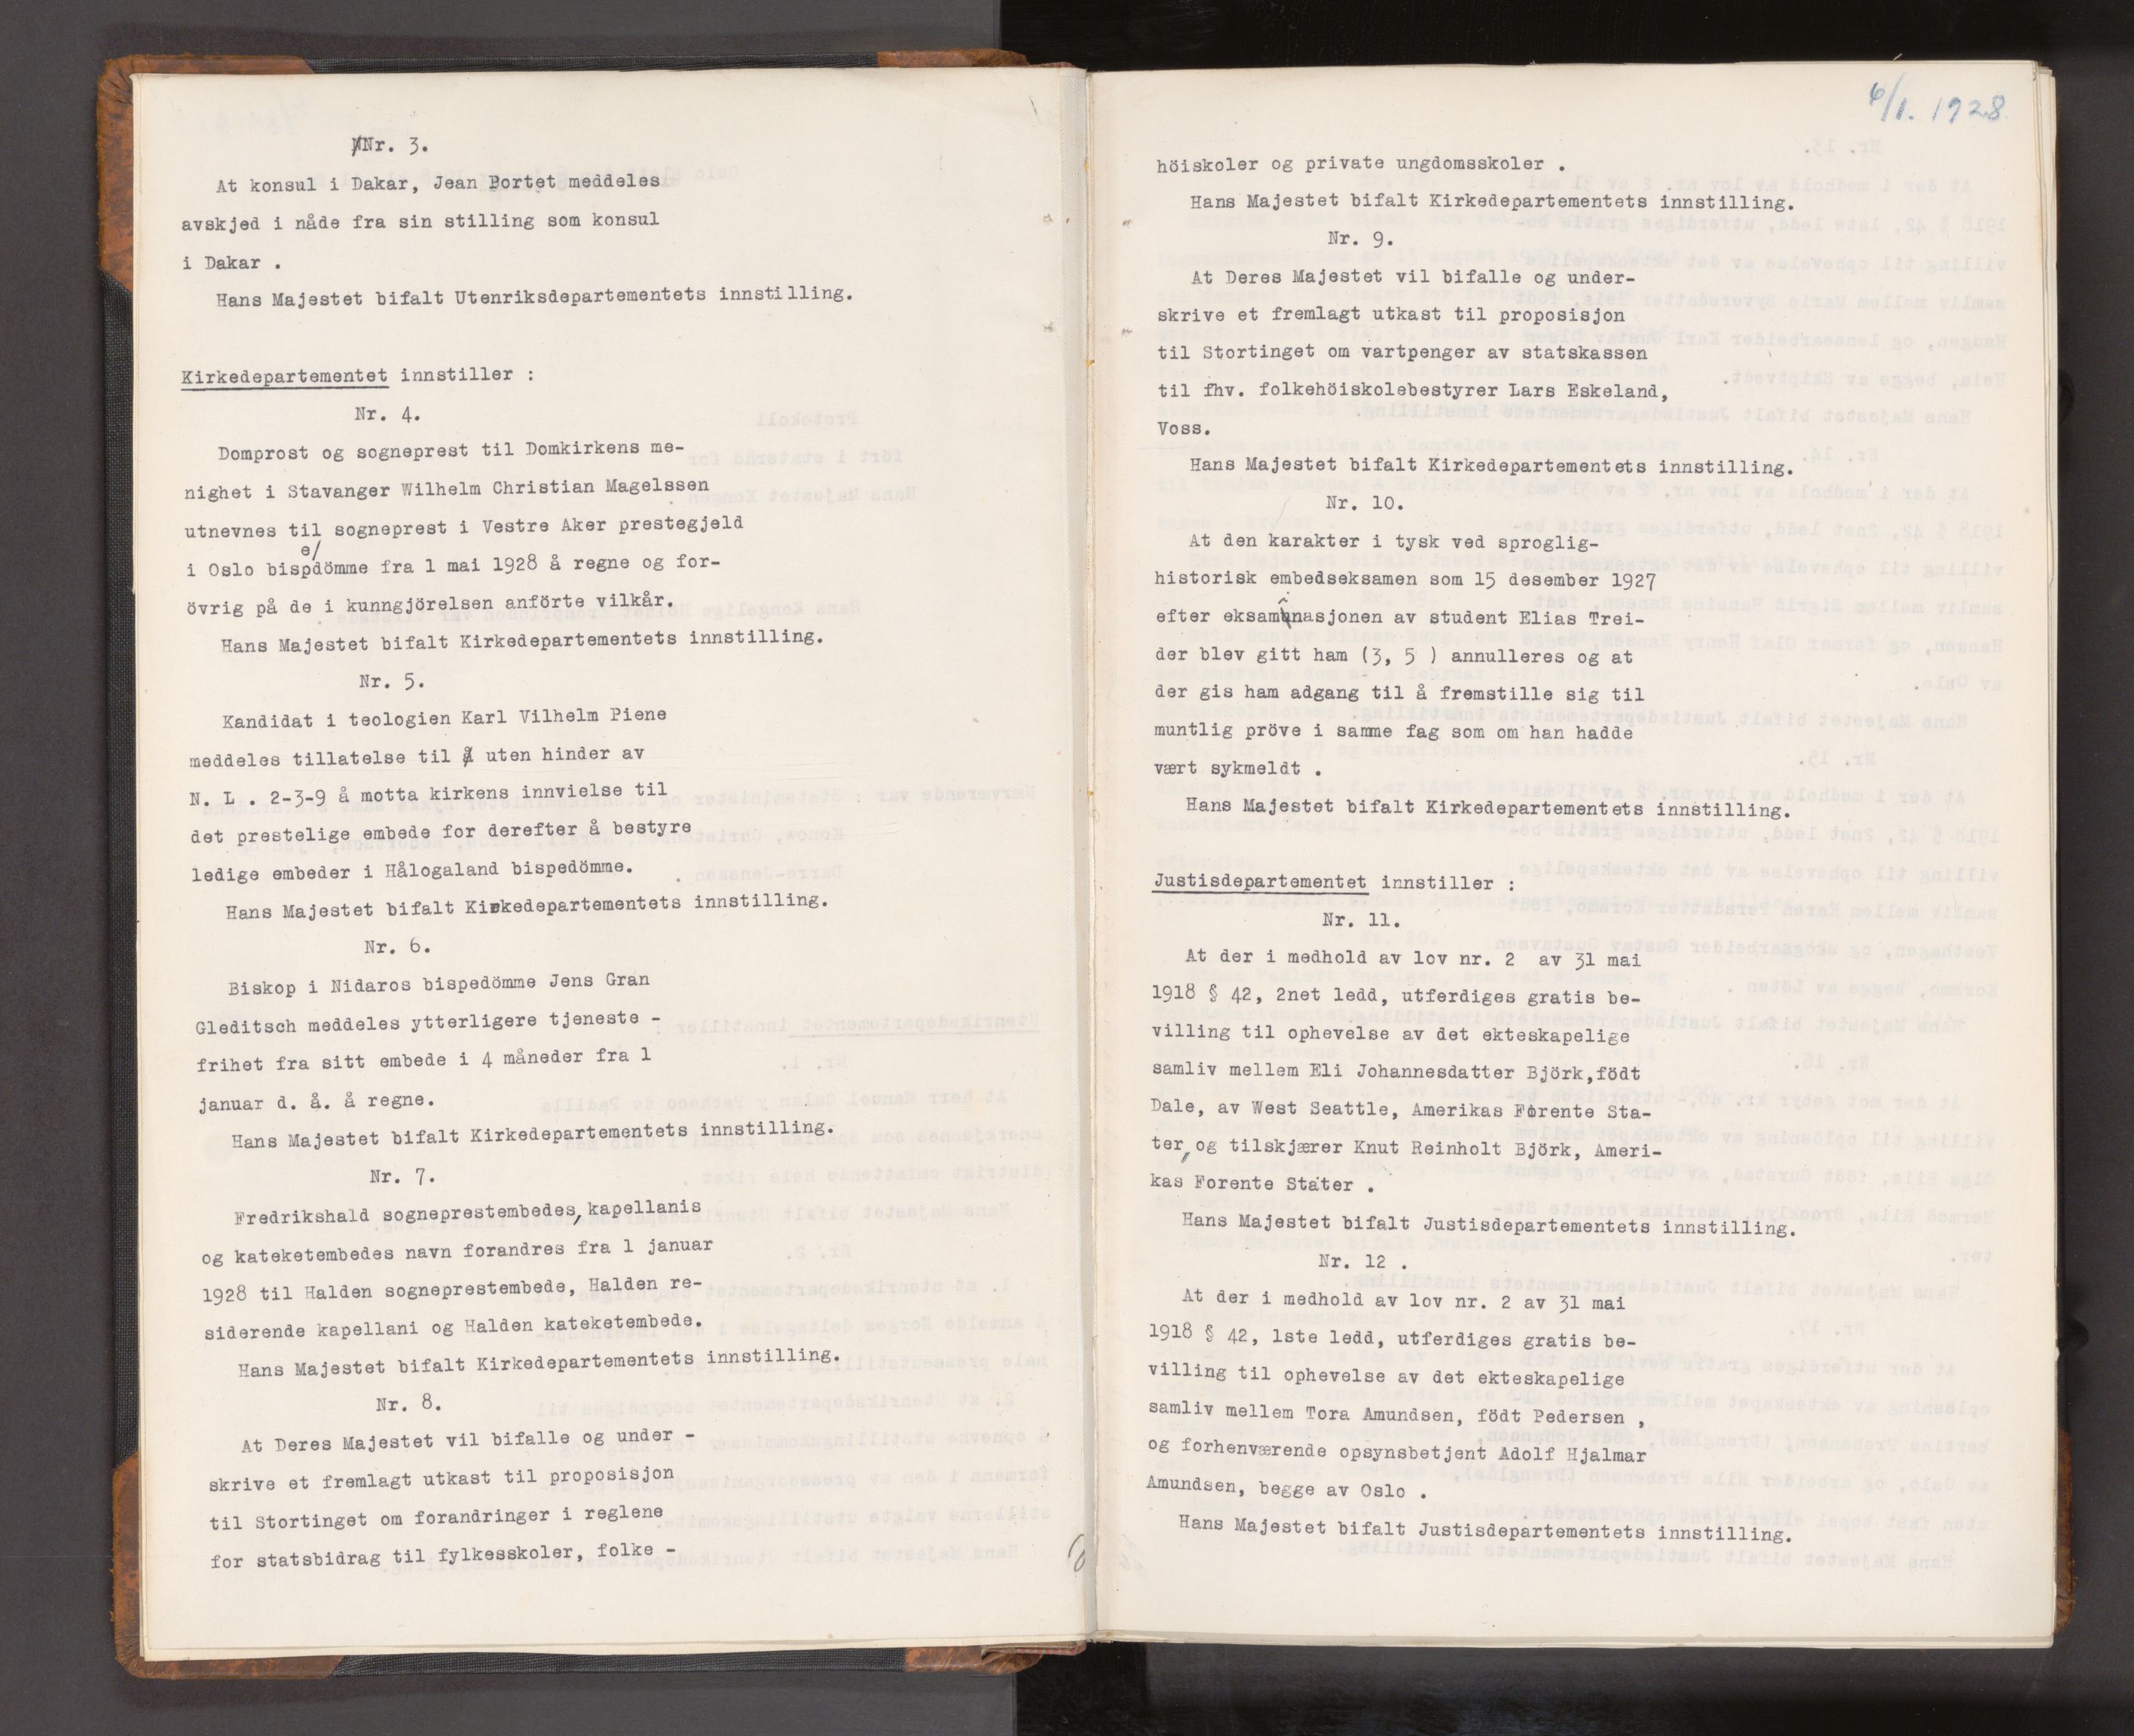 Nr. 3.
At konsul i Dakar, Jean Bortet meddeles
avskjed i nåde fra sin stilling som konsul
i Dakar .
Hans Majestet bifalt Utenriksdepartementets innstilling.
Kirkedepartementet innstiller :
Nr. 4.
Domprost og sogneprest til Domkirkens me-
nighet i Stavanger Wilhelm Christian Magelssen
utnevnes til sogneprest i Vestre Aker prestegjeld
i Oslo bispedömme fra 1 mai 1928 å regne og for-
övrig på de i kunngjörelsen anförte vilkår.
Hans Majestet bifalt Kirkedepartementets innstilling.
Nr. 5.
Kandidat i teologien Karl Vilhelm Piene
meddeles tillatelse til uten hinder av
N. L . 2-3-9 å motta kirkens innvielse til
det prestelige embede for derefter å bestyre
ledige embeder i Hålogaland bispedömme.
Hans Majestet bifalt Kirkedepartementets innstilling.
Nr. 6.
Biskop i Nidaros bispedömme Jens Gran
Gleditsch meddeles ytterligere tjeneste -
frihet fra sitt embede i 4 måneder fra 1
januar d. å. å regne.
Hans Majestet bifalt Kirkedepartementets innstilling.
Nr. 7.
Fredrikshald sogneprestembedes, kapellanis
og kateketembedes navn forandres fra 1 januar
1928 til Halden sogneprestembede, Halden re-
siderende kapellani og Halden kateketembede.
Hans Majestet bifalt Kirkedepartementets innstilling.
Nr. 8.
At Deres Majestet vil bifalle og under -
skrive et fremlagt utkast til proposisjon
til Stortinget om forandringer i reglene
for statsbidrag til fylkesskoler, folke -
6/1. 1928
höiskoler og private ungdomsskoler .
Hans Majestet bifalt Kirkedepartementets innstilling.
Nr. 9.
At Deres Majestet vil bifalle og under-
skrive et fremlagt utkast til proposisjon
til Stortinget om vartpenger av statskassen
til fhv. folkehöiskolebestyrer Lars Eskeland,
Voss.
Hans Majestet bifalt Kirkedepartementets innstilling.
Nr. 10.
At den karakter i tysk ved sproglig-
historisk embedseksamen som 15 desember 1927
efter eksaminasjonen av student Elias Trei-
der blev gitt ham (3, 5 ) annulleres og at
der gis ham adgang til å fremstille sig til
muntlig pröve i samme fag som om han hadde
vært sykmeldt .
Hans Majestet bifalt Kirkedepartementets innstilling.
Justisdepartementet innstiller :
Nr. 11.
At der i medhold av lov nr. 2 av 31 mai
1918 § 42, 2net ledd, utferdiges gratis be-
villing til ophevelse av det ekteskapelige
samliv mellem Eli Johannesdatter Björk,födt
Dale, av West Seattle, Amerikas Forente Sta-
ter, og tilskjærer Knut Reinholt Björk, Ameri-
kas Forente Stater .
Hans Majestet bifalt Justisdepartementets innstilling.
Nr. 12 .
At der i medhold av lov nr. 2 av 31 mai
1918 § 42, 1ste ledd, utferdiges gratis be-
villing til ophevelse av det ekteskapelige
samliv mellem Tora Amundsen, födt Pedersen ,
og forhenværende opsynsbetjent Adolf Hjalmar
Amundsen, begge av Oslo .
Hans Majestet bifalt Justisdepartementets innstilling.